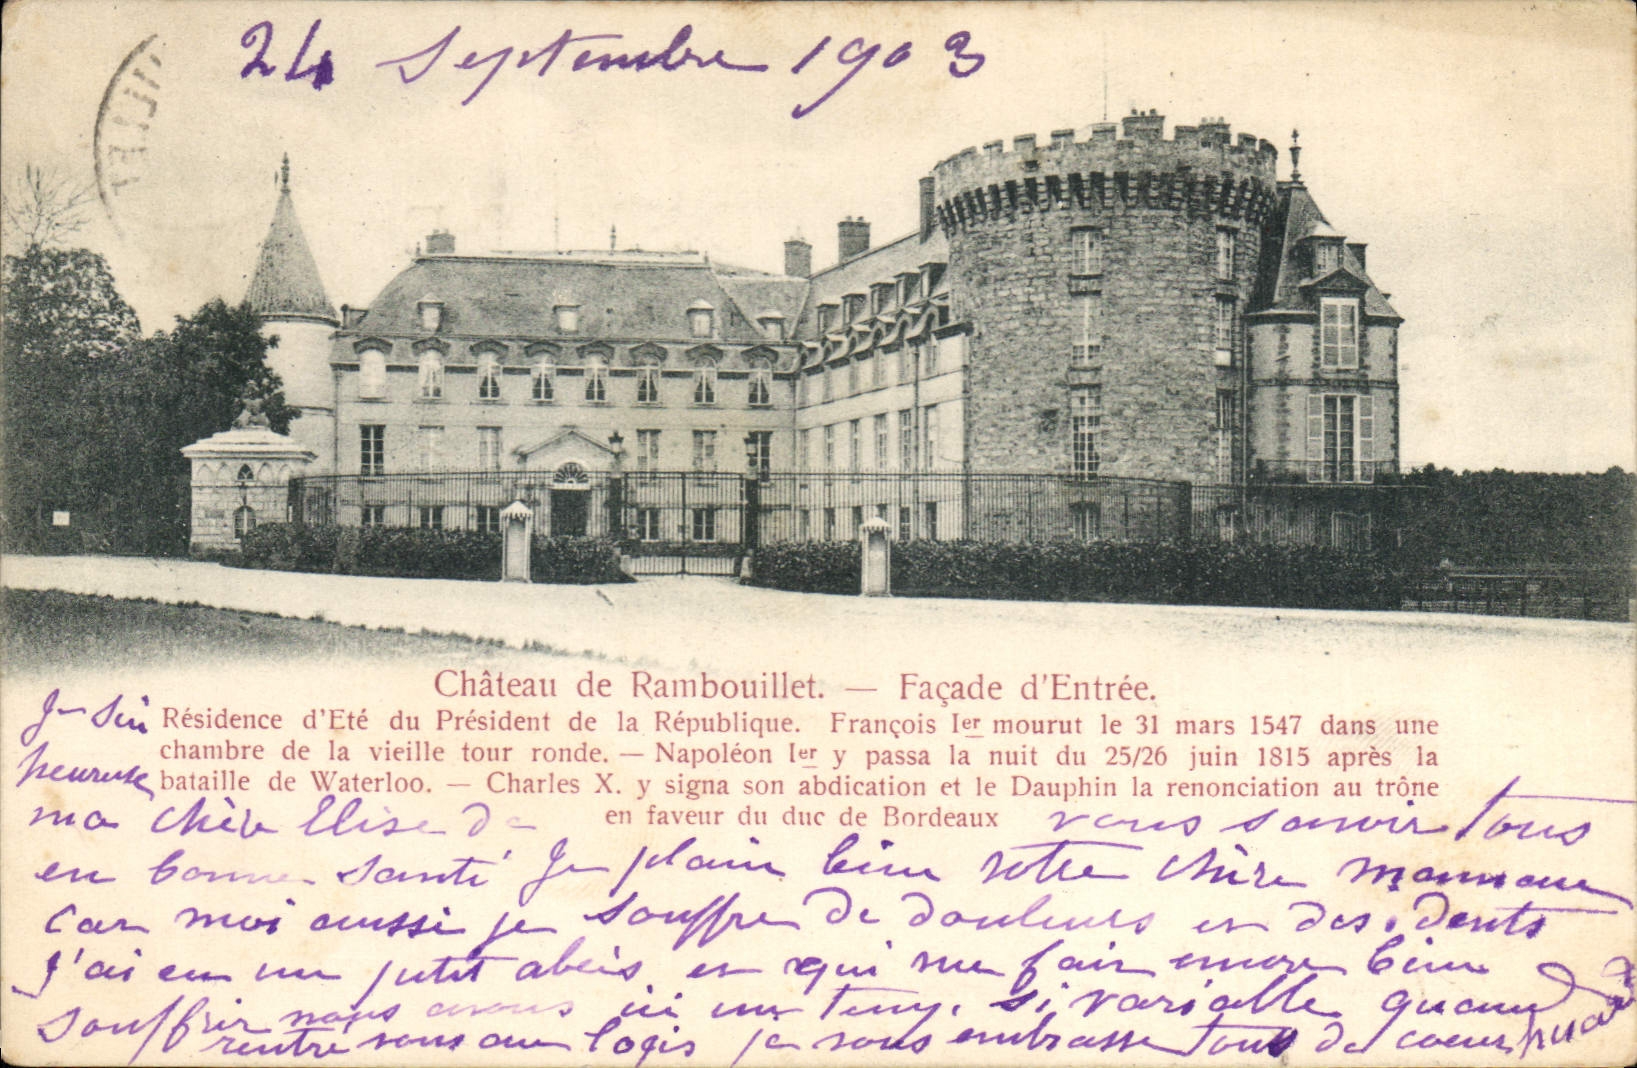 24 Septembre 1903
Château de Rambouillet. — Façade d'Entrée.
Résidence d'Eté du Président de la République. François Ier mourut le 31 mars 1547 dans une
chambre de la vieille tour ronde. — Napoléon Ier y passa la nuit du 25/26 juin 1815 après la
bataille de Waterloo. — Charles X. y signa son abdication et le Dauphin la renonciation au trône
en faveur du duc de Bordeaux
Je sui
heureuse
ma chère Elise de vous savoir tous
en bonne santé Je plain bien votre chère maman
car moi aussi je souffre de douleurs et des dents
j'ai eu un petit abcis et qui me fair encore bien
souffrir nous avons ici un temp si variable quand
rentre vous au logis je vous embrasse tous de coeur